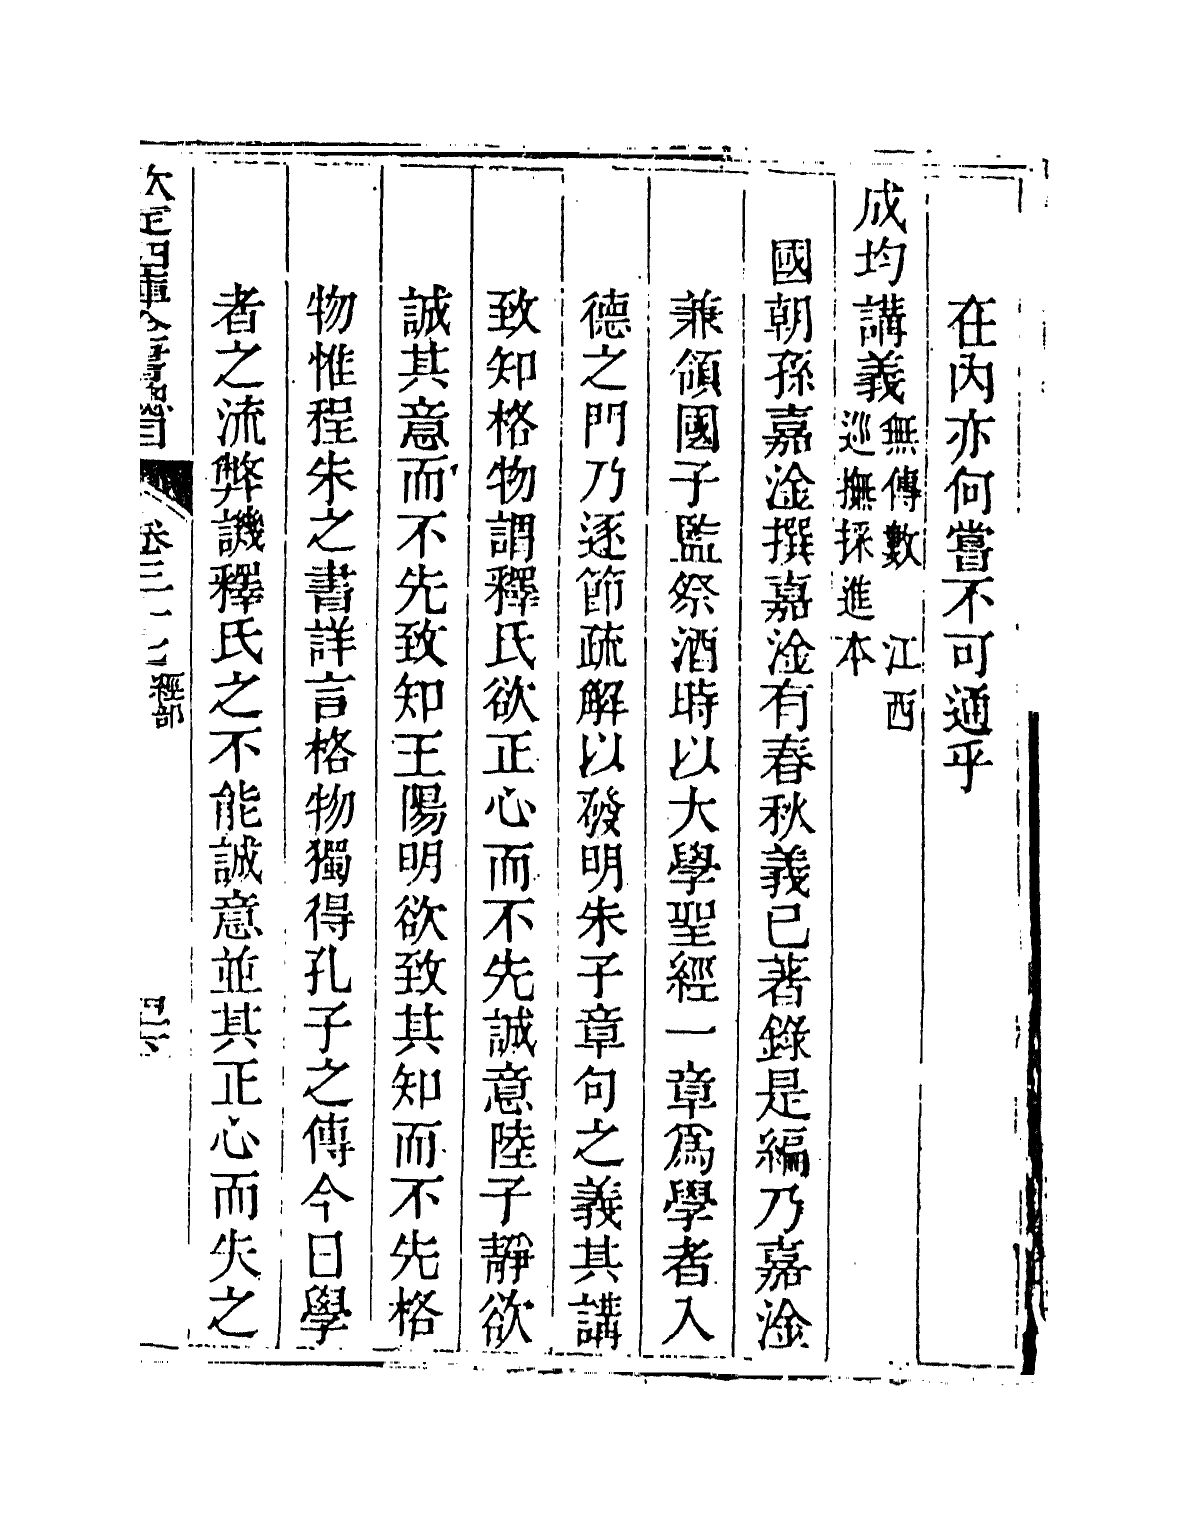 在內亦何嘗不可通乎
成均講義無傳數 江西
巡撫採進本
國朝孫嘉淦撰嘉淦有春秋義已著錄是編乃嘉淦
兼領國子監祭酒時以大學聖經一章爲學者入
德之門乃逐節疏解以發明朱子章句之義其講
致知格物謂釋氏欲正心而不先誠意陸子靜欲
誠其意而不先致知王陽明欲致其知而不先格
物惟程朱之書詳言格物獨得孔子之傳今日學
者之流弊譏釋氏之不能誠意並其正心而失之
欽定四庫全書總目 卷三十七 經部 四六